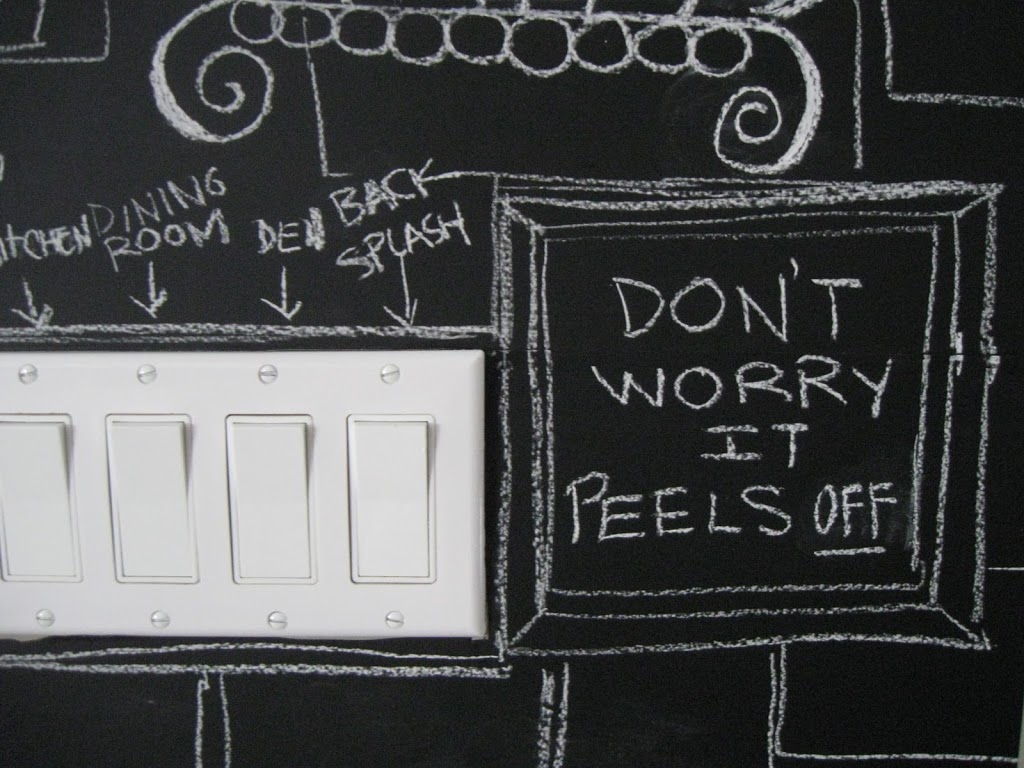 KITCHEN
DINING
ROOM
DEN
BACK
SPLASH
DON'T
WORRY
IT
PEELS OFF